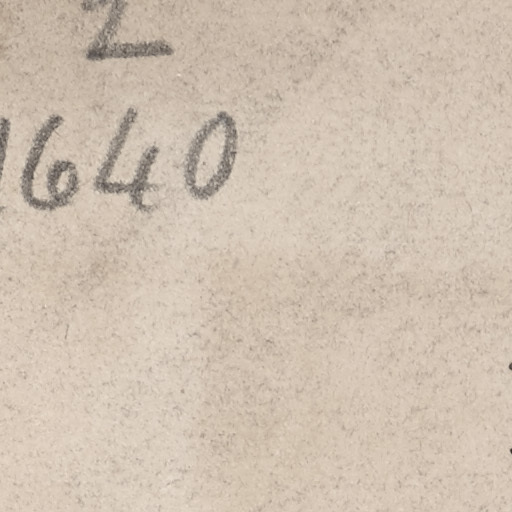 2
1640